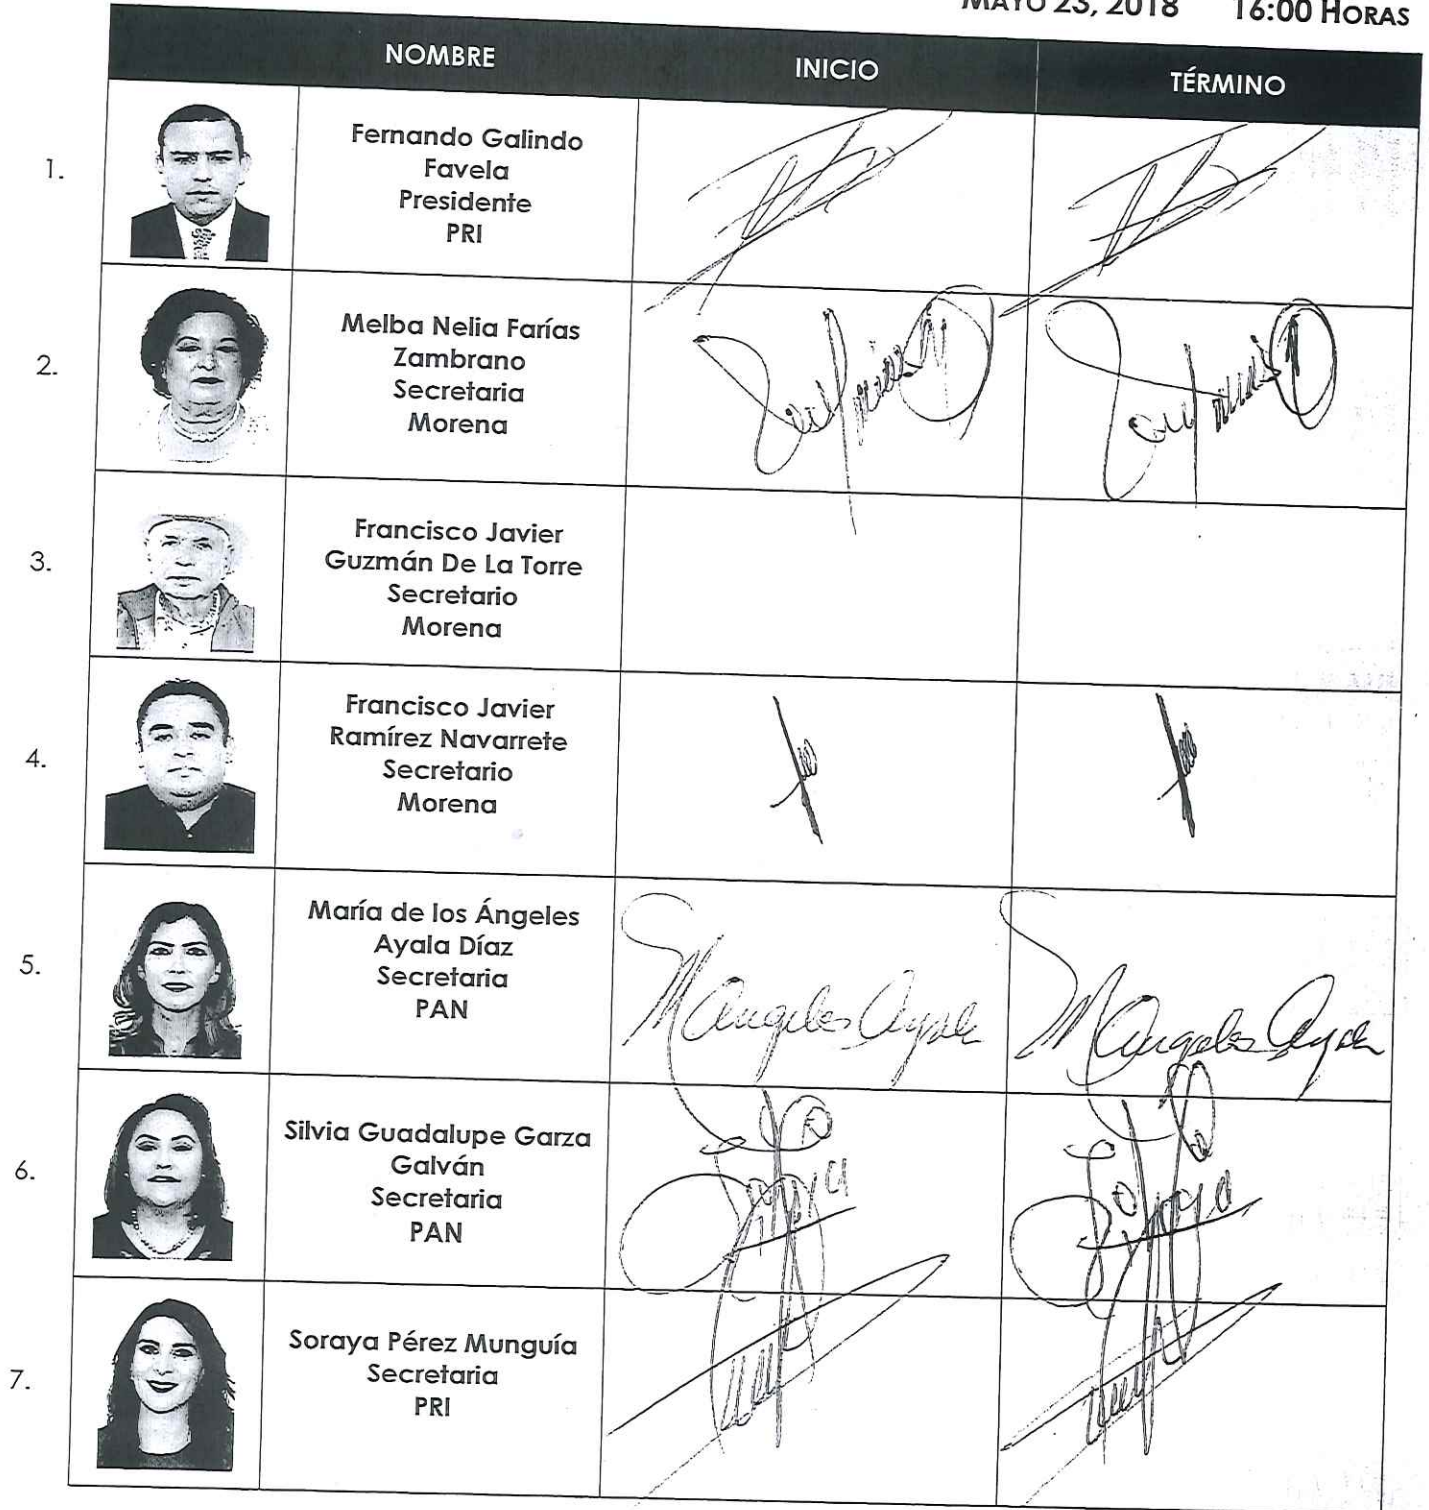 MAYO 23, 2018 16:00 HORAS
NOMBRE INICIO TÉRMINO
1.
Fernando Galindo
Favela
Presidente
PRI
2.
Melba Nelia Farías
Zambrano
Secretaria
Morena
3.
Francisco Javier
Guzmán De La Torre
Secretario
Morena
4.
Francisco Javier
Ramírez Navarrete
Secretario
Morena
5.
María de los Ángeles
Ayala Díaz
Secretaria
PAN
M Angeles Ayala M Angeles Ayala
6.
Silvia Guadalupe Garza
Galván
Secretaria
PAN
7.
Soraya Pérez Munguía
Secretaria
PRI